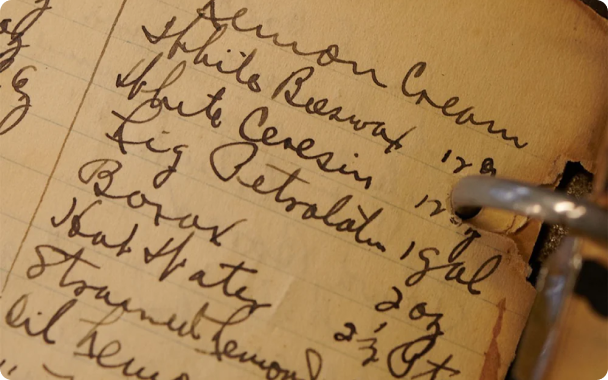 Lemon Cream
White Beeswax 12
White Ceresin 12 oz
Liq Petrolatum 1 gal
Borax 2 oz
Hot Water 2 1/2 Pt
Strained Lemon
Oil Lemon